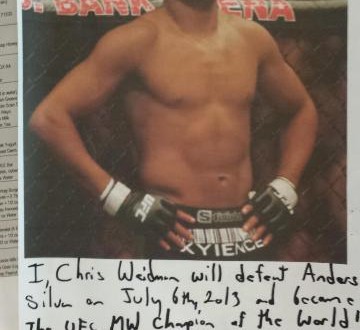 BANK ARENA
UFC
XYIENCE
I, Chris Weidman will defeat Anderson
Silva on July 6th, 2013 and become
The UFC MW Champion of the World!